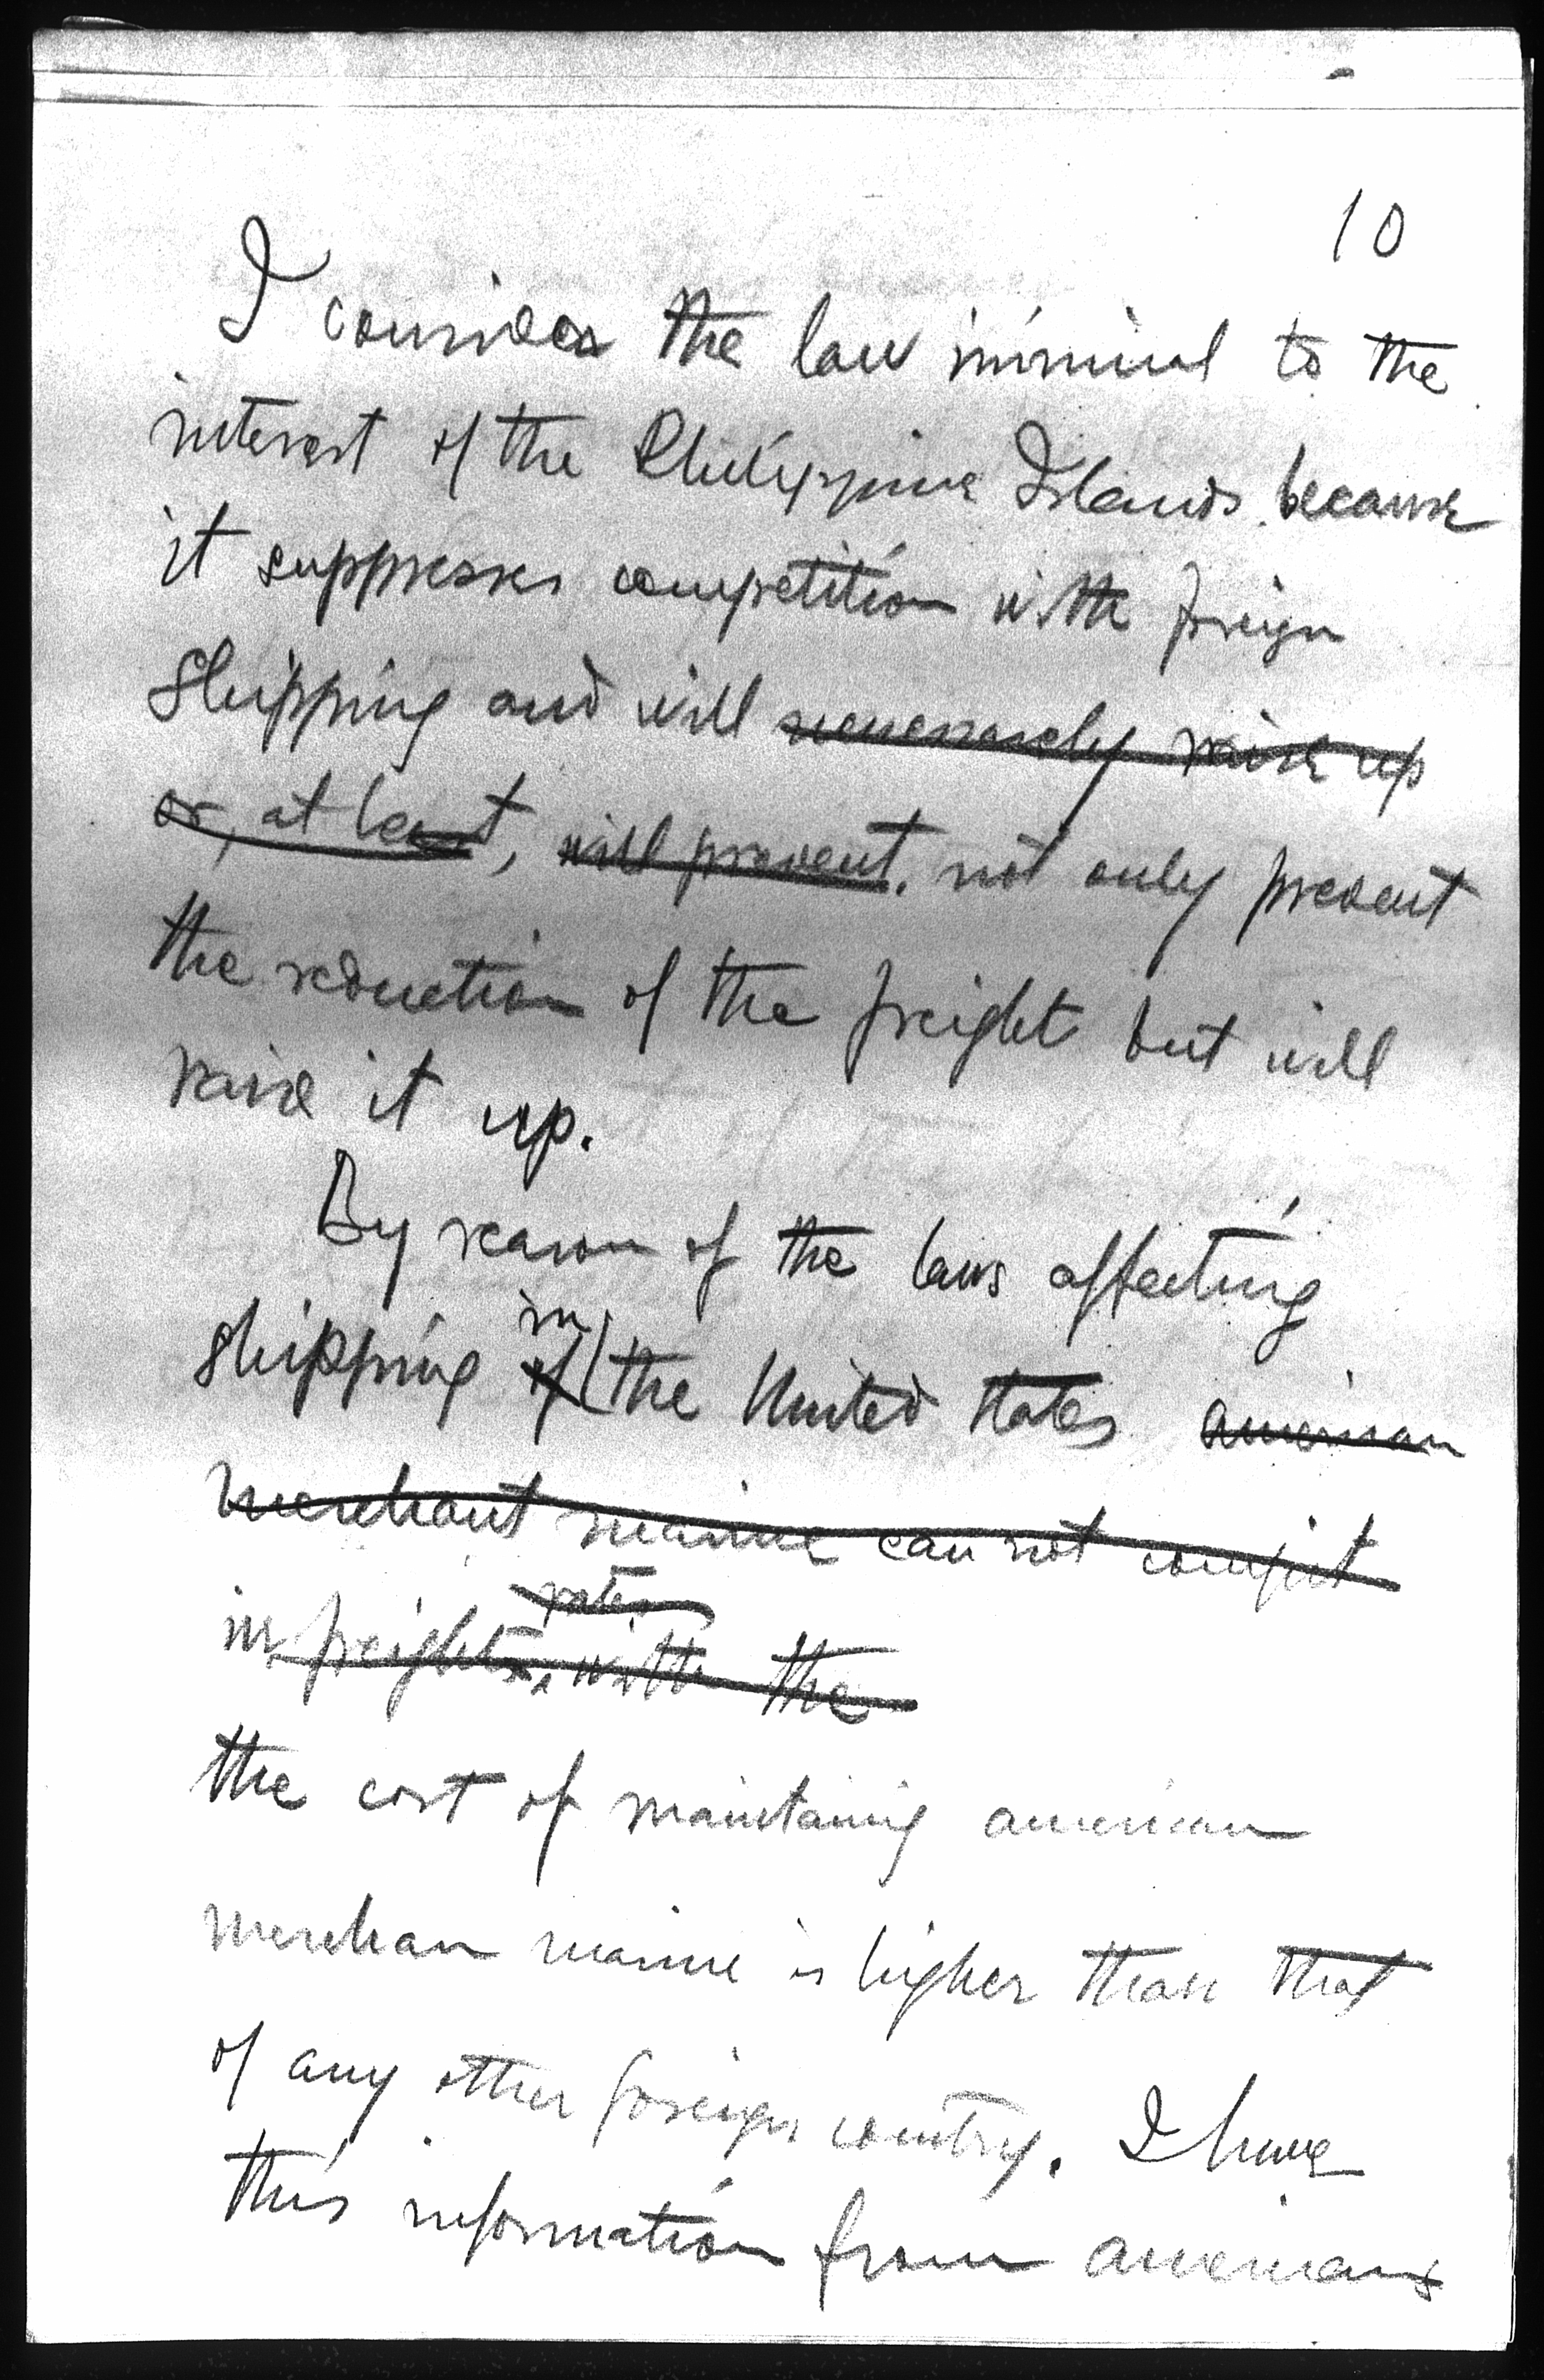 10
I consider the law inimical to the
interest of the Philippine Islands because
it suppresses competition with foreign
shipping and will necessarely raise up
or, at least, will prevent. not only prevent
the reduction of the freight but will
raise it up.
By reason of the laws affecting
in
shipping of the United States american
merchant marine can not compet
rates
in freights, with the
the cost of maintaining american
merchan marine is higher than that
of any other foreign country. I have
this information from americans